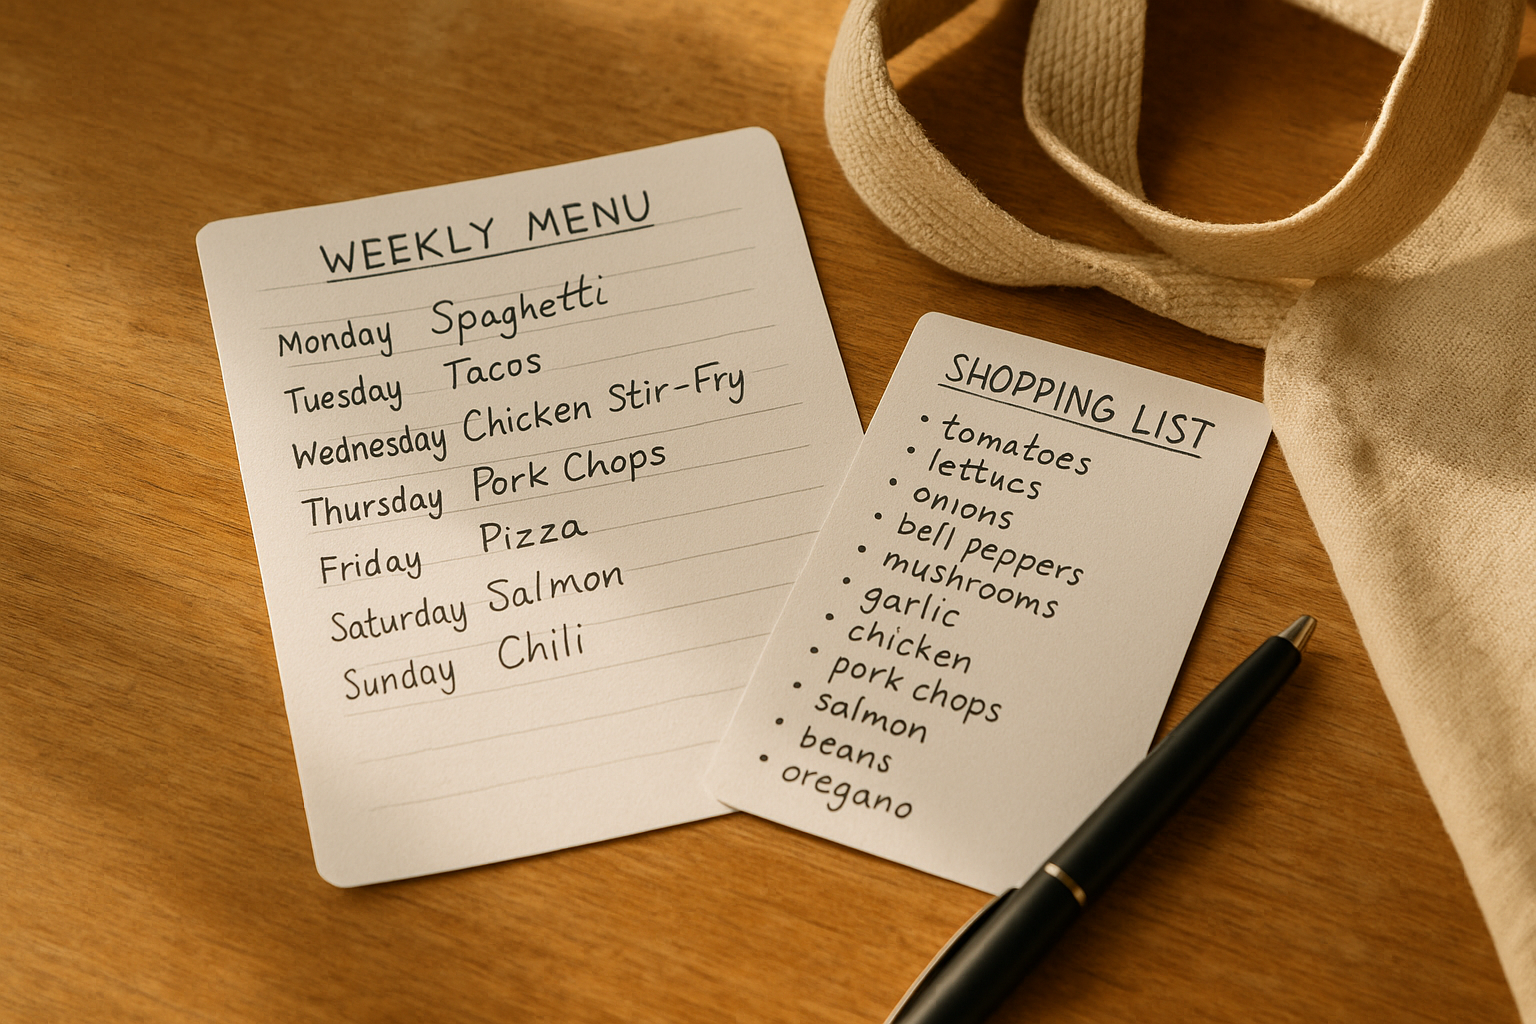 WEEKLY MENU
Monday Spaghetti
Tuesday Tacos
Wednesday Chicken Stir-Fry
Thursday Pork Chops
Friday Pizza
Saturday Salmon
Sunday Chili
SHOPPING LIST
• tomatoes
• lettucs
• onions
• bell peppers
• mushrooms
• garlic
• chicken
• pork chops
• salmon
• beans
• oregano